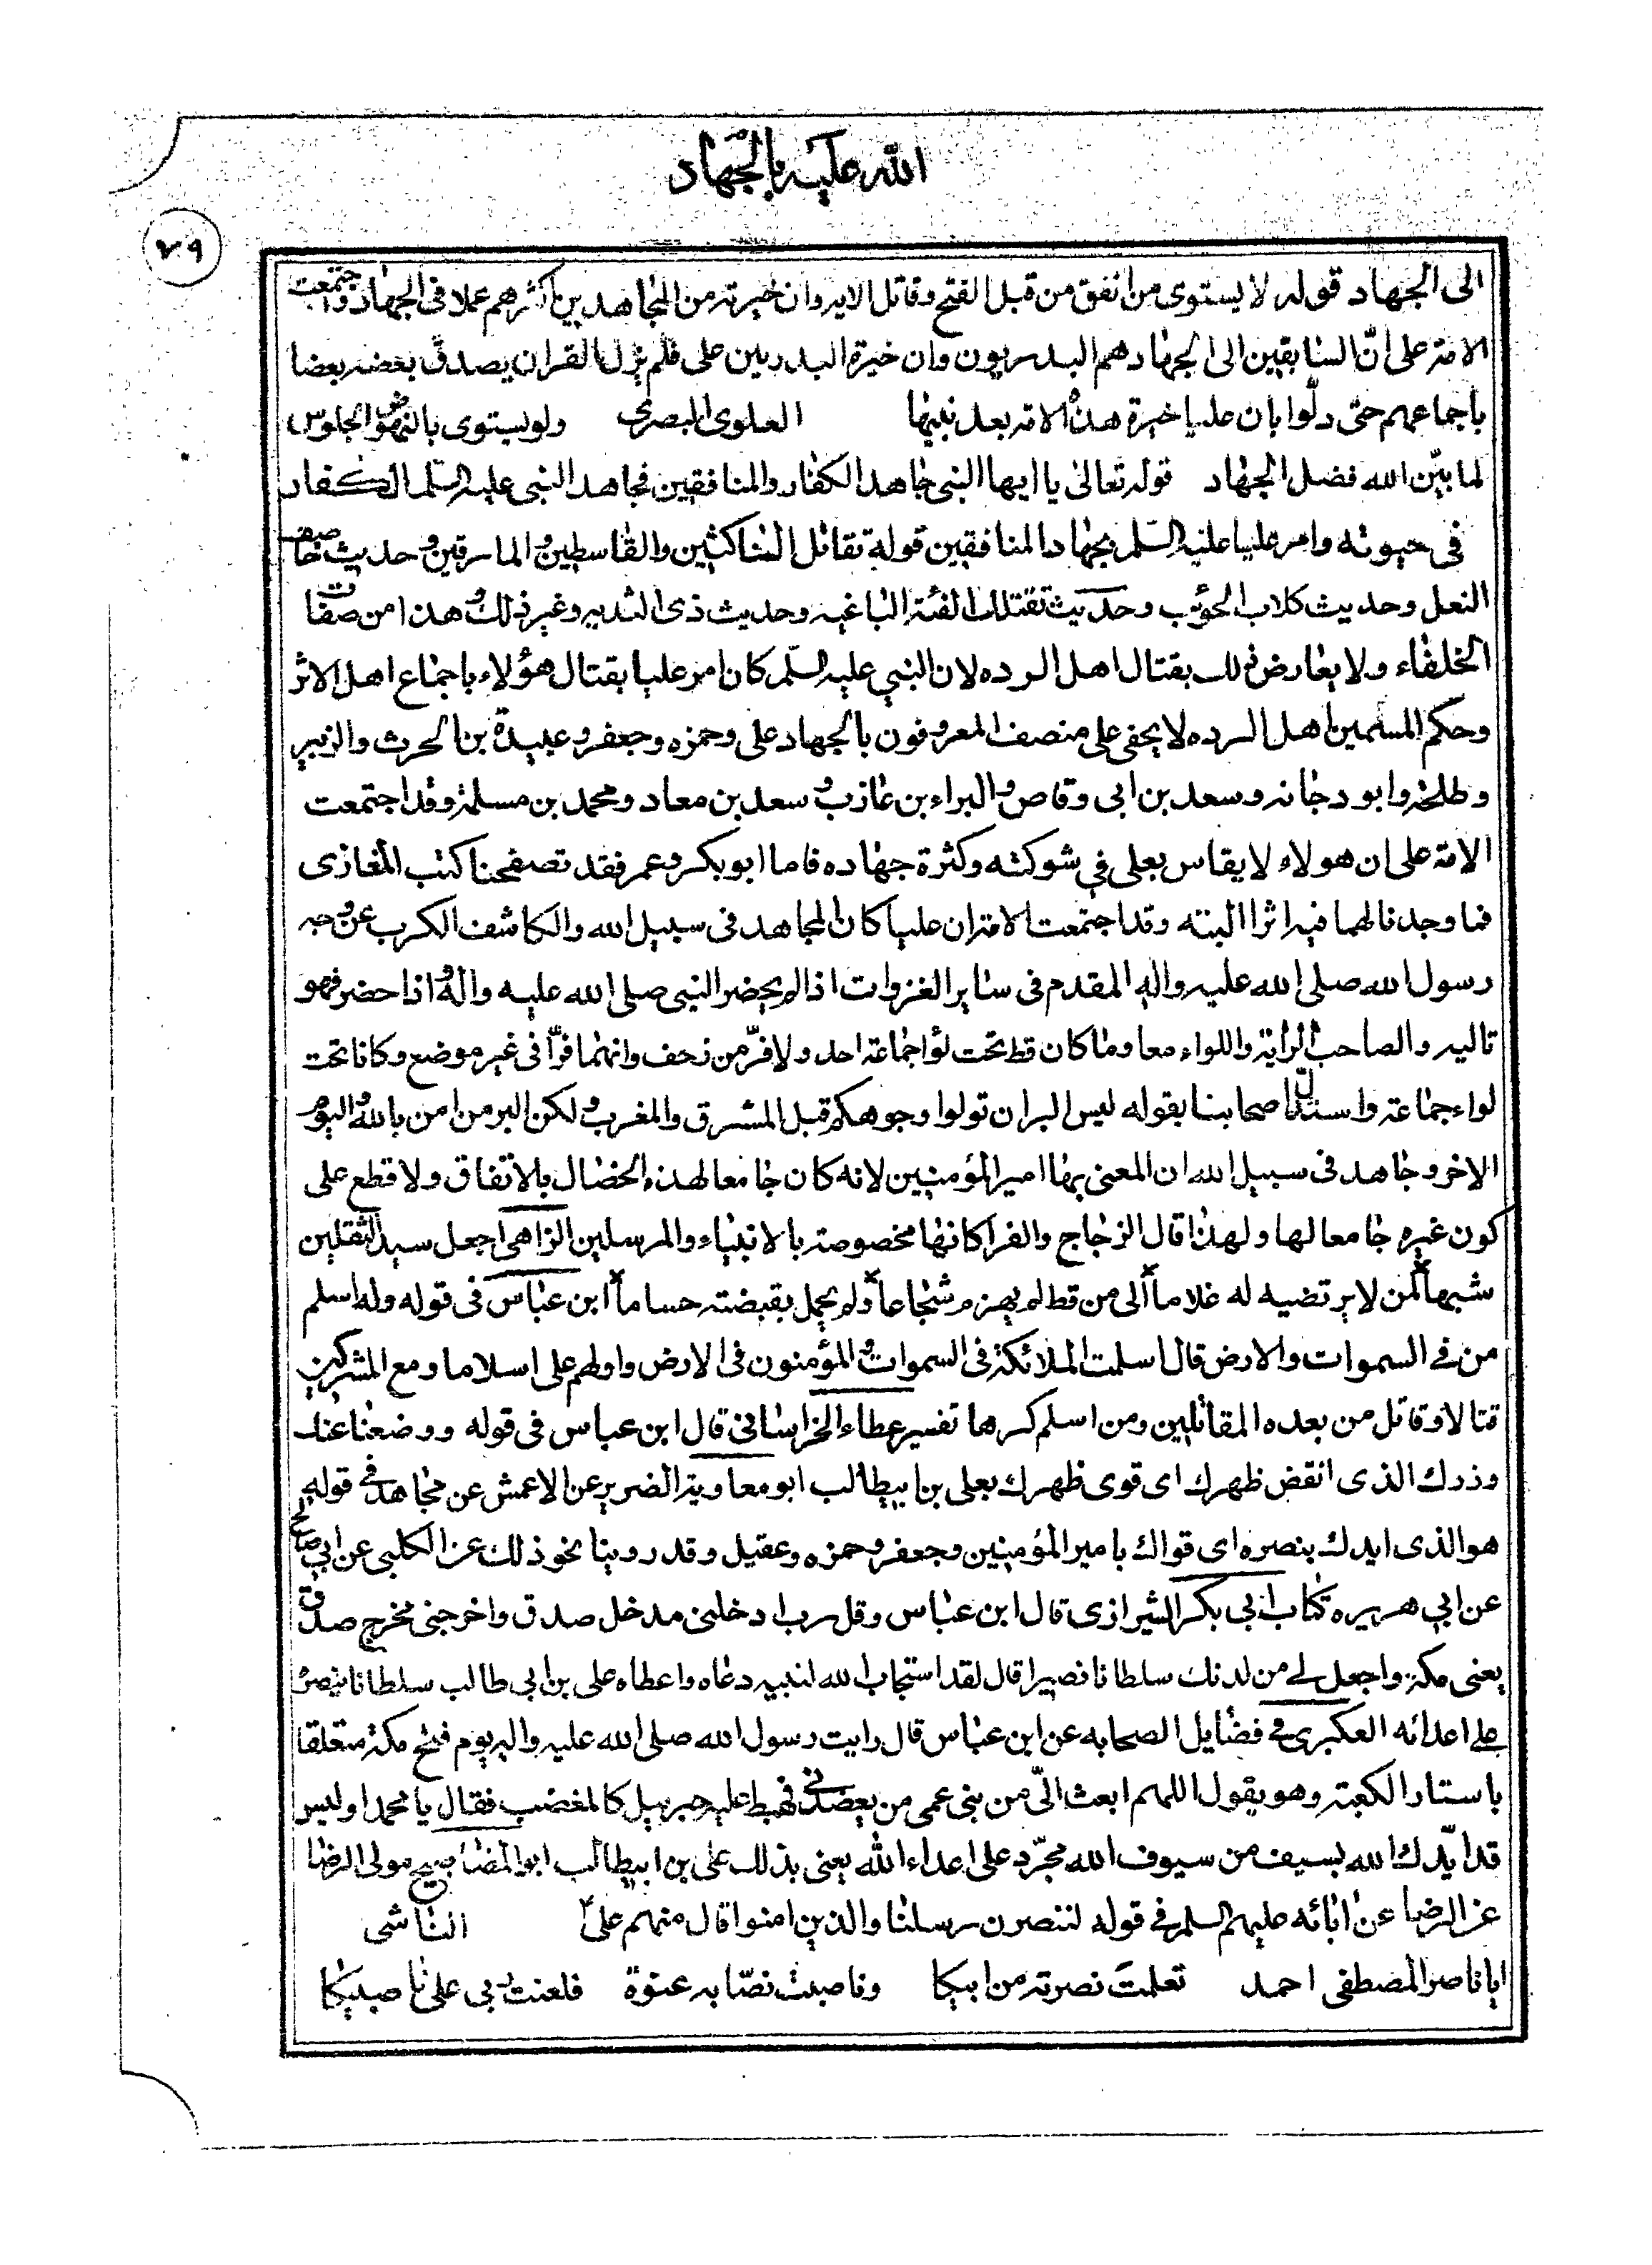 الله عليه بالجهاد
٢٩
الى الجهاد قوله لا يستوى من انفق من قبل الفتح وقاتل الايه وان خيرته من المجاهدين اكثرهم عملا فى الجهاد واجتمعت
الامة على انّ السابقين الى الجهاد هم البدريون وان خيرة البدريين على فلم يزل القران يصدق بعضه بعضا
باجماعهم حتى دلّوا بان عليا خيرة هذه الامة بعد نبيها العلوى البصرى ولو يستوى بالنهوض الجلوس
لما بيّن الله فضل الجهاد قوله تعالى يا ايها النبى جاهد الكفار والمنافقين فجاهد النبى عليه السّلم الكفار
فى حيوته وامر عليا عليه السّلم بجهاد المنافقين قوله تقاتل الناكثين والقاسطين والمارقين وحديث خاصف
النعل وحديث كلاب الحوئب وحديث تقتلك الفئة الباغيه وحديث ذى الثديه وغير ذلك وهذا من صفات
الخلفاء ولا يعارض ذلك بقتال اهل الرده لان النبى عليه السّلم كان امر عليا بقتال هؤلاء باجماع اهل الاثر
وحكم المسلمين اهل الرده لا يخفى على منصف المعروفون بالجهاد على وحمزه وجعفر وعبيدة بن الحرث والزبير
وطلحه وابو دجانه وسعد بن ابى وقاص والبراء بن عازب وسعد بن معاد ومحمد بن مسلمة وقد اجتمعت
الامة على ان هولاء لا يقاس بعلى في شوكته وكثرة جهاده فاما ابو بكر وعمر فقد تصفحنا كتب المغازى
فما وجدنا لهما فيه اثرا البته وقد اجتمعت الامة ان عليا كان المجاهد فى سبيل الله والكاشف الكرب عن وجه
رسول الله صلى الله عليه واله المقدم فى ساير الغزوات اذا لم يحضر النبى صلى الله عليه واله واذا حضر فهو
تاليه والصاحب الراية واللواء معا وما كان قط تحت لؤا جماعة احد ولا فرّ من زحف وانهما فرّا فى غير موضع وكانا تحت
لواء جماعة واستدلّ اصحابنا بقوله ليس البر ان تولوا وجوهكم قبل المشرق والمغرب ولكن البر من امن بالله واليوم
الاخر وجاهد فى سبيل الله ان المعنى بها امير المؤمنين لانه كان جامعا لهذه الخصال بالاتفاق ولا قطع على
كون غيره جامعا لها ولهذا قال الزجاج والفرا كانها مخصوصة بالانبياء والمرسلين الزاهى اجعل سيد الثقلين
شبها لمن لا يرتضيه له غلاما الى من قط لم يهزم شجاعا ولم يحمل بقبضته حساما ابن عباس فى قوله وله اسلم
من في السموات والارض قال اسلمت الملائكة فى السموات والمؤمنون فى الارض واولهم على اسلاما ومع المشركين
قتالا وقاتل من بعده المقاتلين ومن اسلم كرها تفسير عطاء الخراسانى قال ابن عباس فى قوله ووضعنا عنك
وزرك الذى انقض ظهرك اى قوى ظهرك بعلى بن ابيطالب ابو معاوية الضرير عن الاعمش عن مجاهد في قوله
هو الذى ايدك بنصره اى قواك بامير المؤمنين وجعفر وحمزه وعقيل وقد روينا نحو ذلك عن الكلبى عن ابي صالح
عن ابي هريره كتاب ابى بكر الشيرازى قال ابن عباس وقل رب ادخلنى مدخل صدق واخرجنى مخرج صدق
يعنى مكة واجعل لي من لدنك سلطانا نصيرا قال لقد استجاب الله لنبيه دعاه واعطاه على بن ابى طالب سلطانا ينصره
على اعدائه العكبرى في فضايل الصحابه عن ابن عباس قال رايت رسول الله صلى الله عليه واله يوم فتح مكة متعلقا
باستار الكعبة وهو يقول اللهم ابعث الىّ من بنى عمى من يعضدنى فهبط عليه جبريل كالمغضب فقال يا محمد اوليس
قد ايّدك الله بسيف من سيوف الله مجرّد على اعداء الله يعنى بذلك على بن ابيطالب ابو المضا صبيح مولى الرضا
عن الرضا عن ابائه عليهم السلم في قوله لننصرن رسلنا والذين امنوا قال منهم على الناشى
ايا ناصر المصطفى احمد تعلمت نصرته من ابيكا وناصبت نصّابه عنوة فلعنت ربى على ناصبيكا